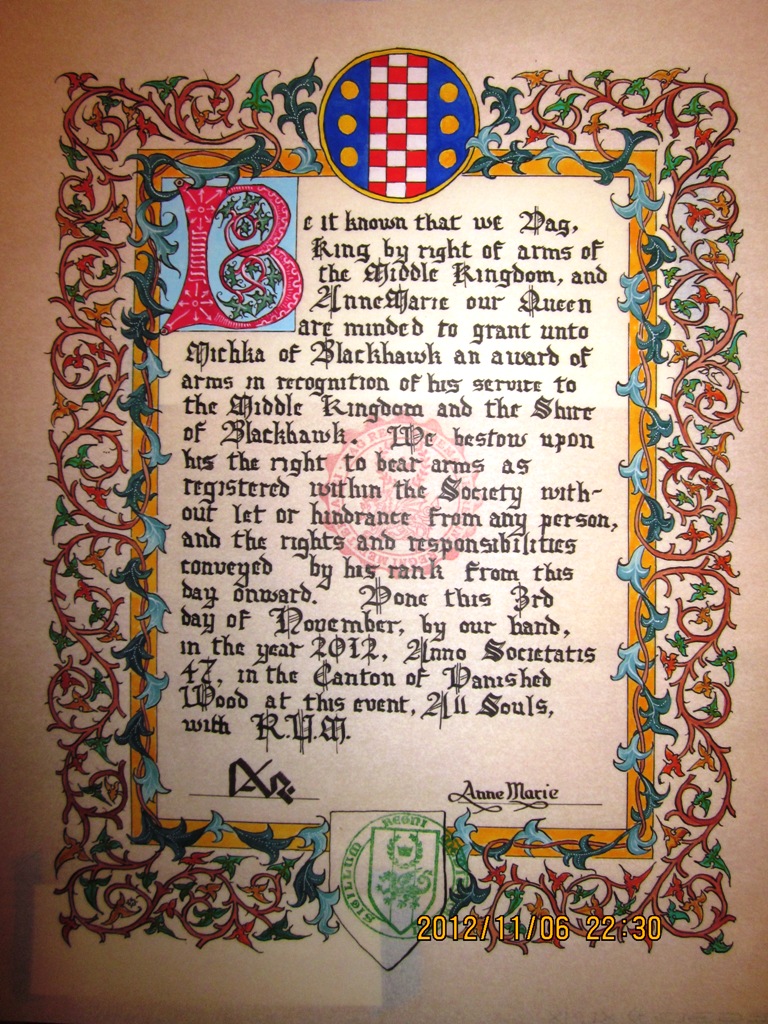 Be it known that we Dag,
King by right of arms of
the Middle Kingdom, and
AnneMarie our Queen
are minded to grant unto
Michka of Blackhawk an award of
arms in recognition of his service to
the Middle Kingdom and the Shire
of Blackhawk. We bestow upon
his the right to bear arms as
registered within the Society with-
out let or hindrance from any person,
and the rights and responsibilities
conveyed by his rank from this
day onward. Done this 3rd
day of November, by our hand,
in the year 2012, Anno Societatis
47, in the Canton of Vanished
Wood at this event, All Souls,
with R.V.M.
Anne Marie
SIGILLUM REGNI
2012/11/06 22:30